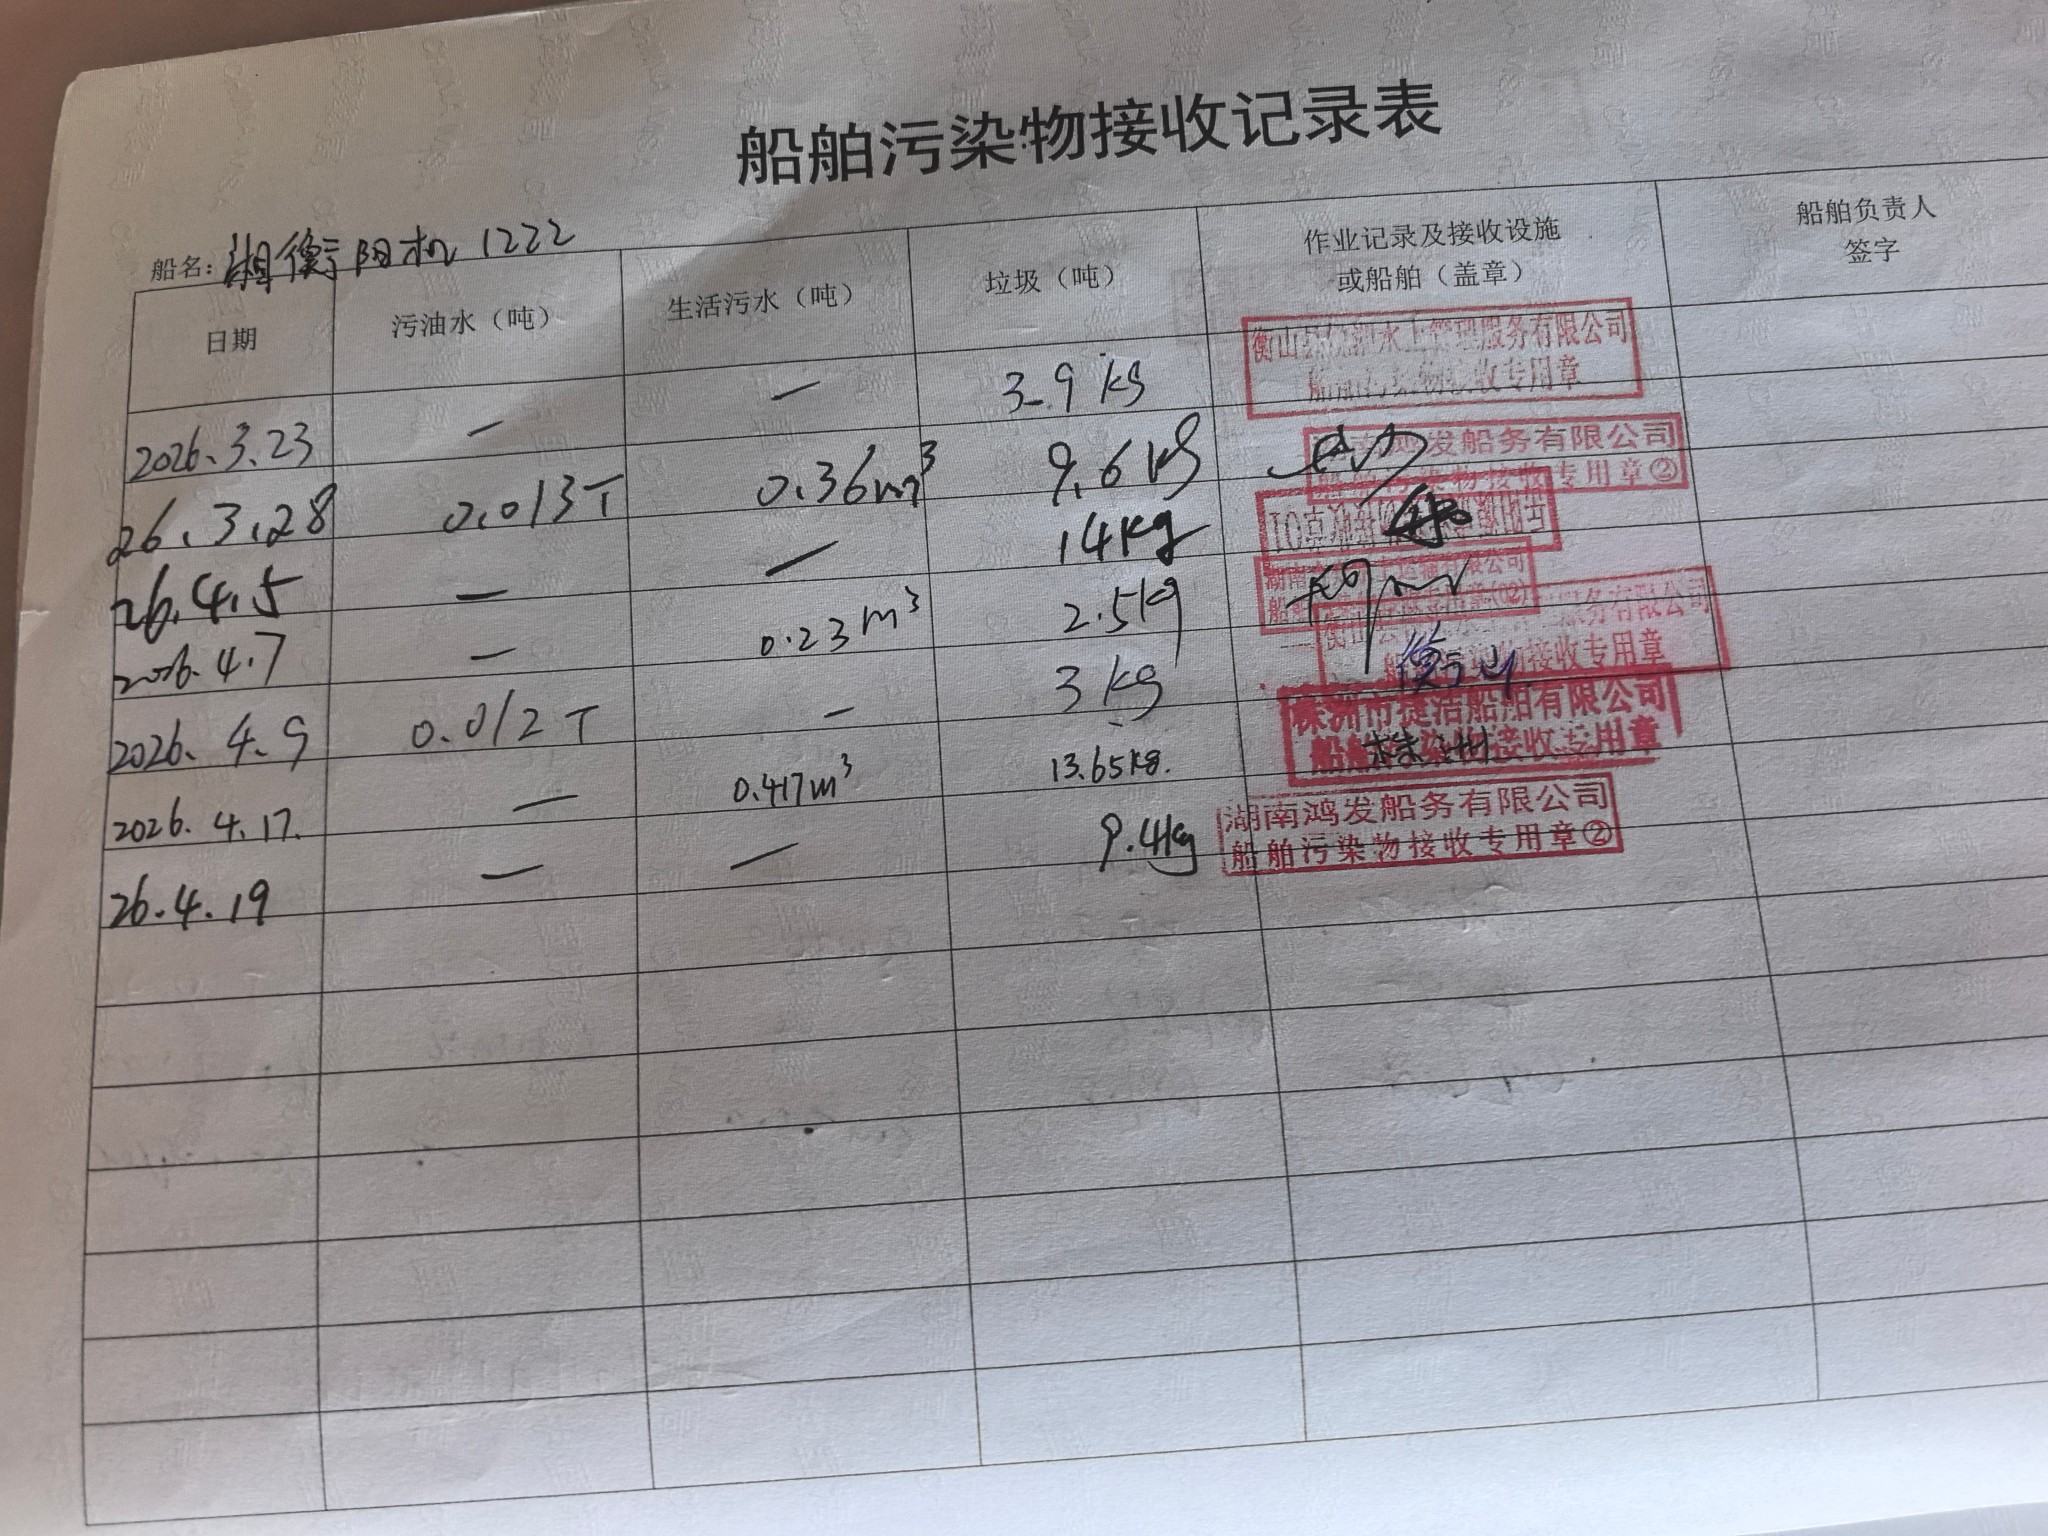 船舶污染物接收记录表
船名：湘衡阳机1222
日期 污油水（吨） 生活污水（吨） 垃圾（吨） 作业记录及接收设施或船舶（盖章） 船舶负责人签字
2026.3.23 — — 3.9kg
船舶污染物接收专用章
26.3.28 0.013T 0.36m³ 9.6kg
湖南鸿发船务有限公司
船舶污染物接收专用章②
26.4.5 — — 14kg
2026.4.7 — 0.23m³ 2.5kg
2026.4.9 0.012T — 3kg 衡山
接收专用章
2026.4.17. — 0.417m³ 13.65kg. 株洲
株洲市捷洁船舶有限公司
船舶污染物接收专用章
26.4.19 — — 9.4kg
湖南鸿发船务有限公司
船舶污染物接收专用章②